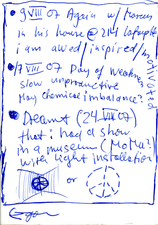 9 VIII 07 Again w/ Marcus
in his house @ 2114 Lafayette
i am awed / inspired / motivated
17 VIII 07 Day of Weakness
slow unproductive
May chemical imbalance?
Dreamt (24 VIII 07)
that i had a show
in a museum (MoMa?)
with light installation
or